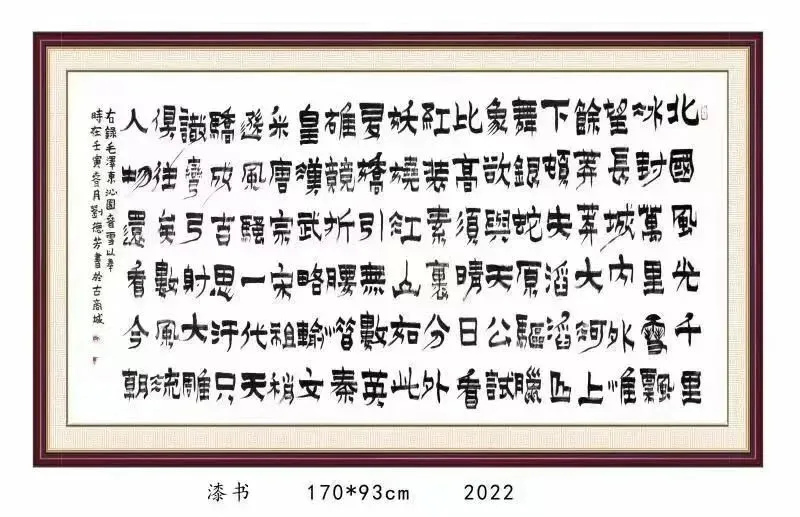 北國風光千里
冰封萬里雪飄
望長城內外惟
餘莽莽大河上
下頓失滔滔山
舞銀蛇原驅臘
象欲與天公試
比高須晴日看
紅裝素裹分外
妖嬈江山如此
多嬌引無數英
雄競折腰惜秦
皇漢武略輸文
采唐宗宋祖稍
遜風騷一代天
驕成吉思汗只
識彎弓射大雕
俱往矣數風流
人物還看今朝
右錄毛澤東沁園春雪以奉
時在壬寅春月劉德芳書於古商城
漆书 170*93cm 2022